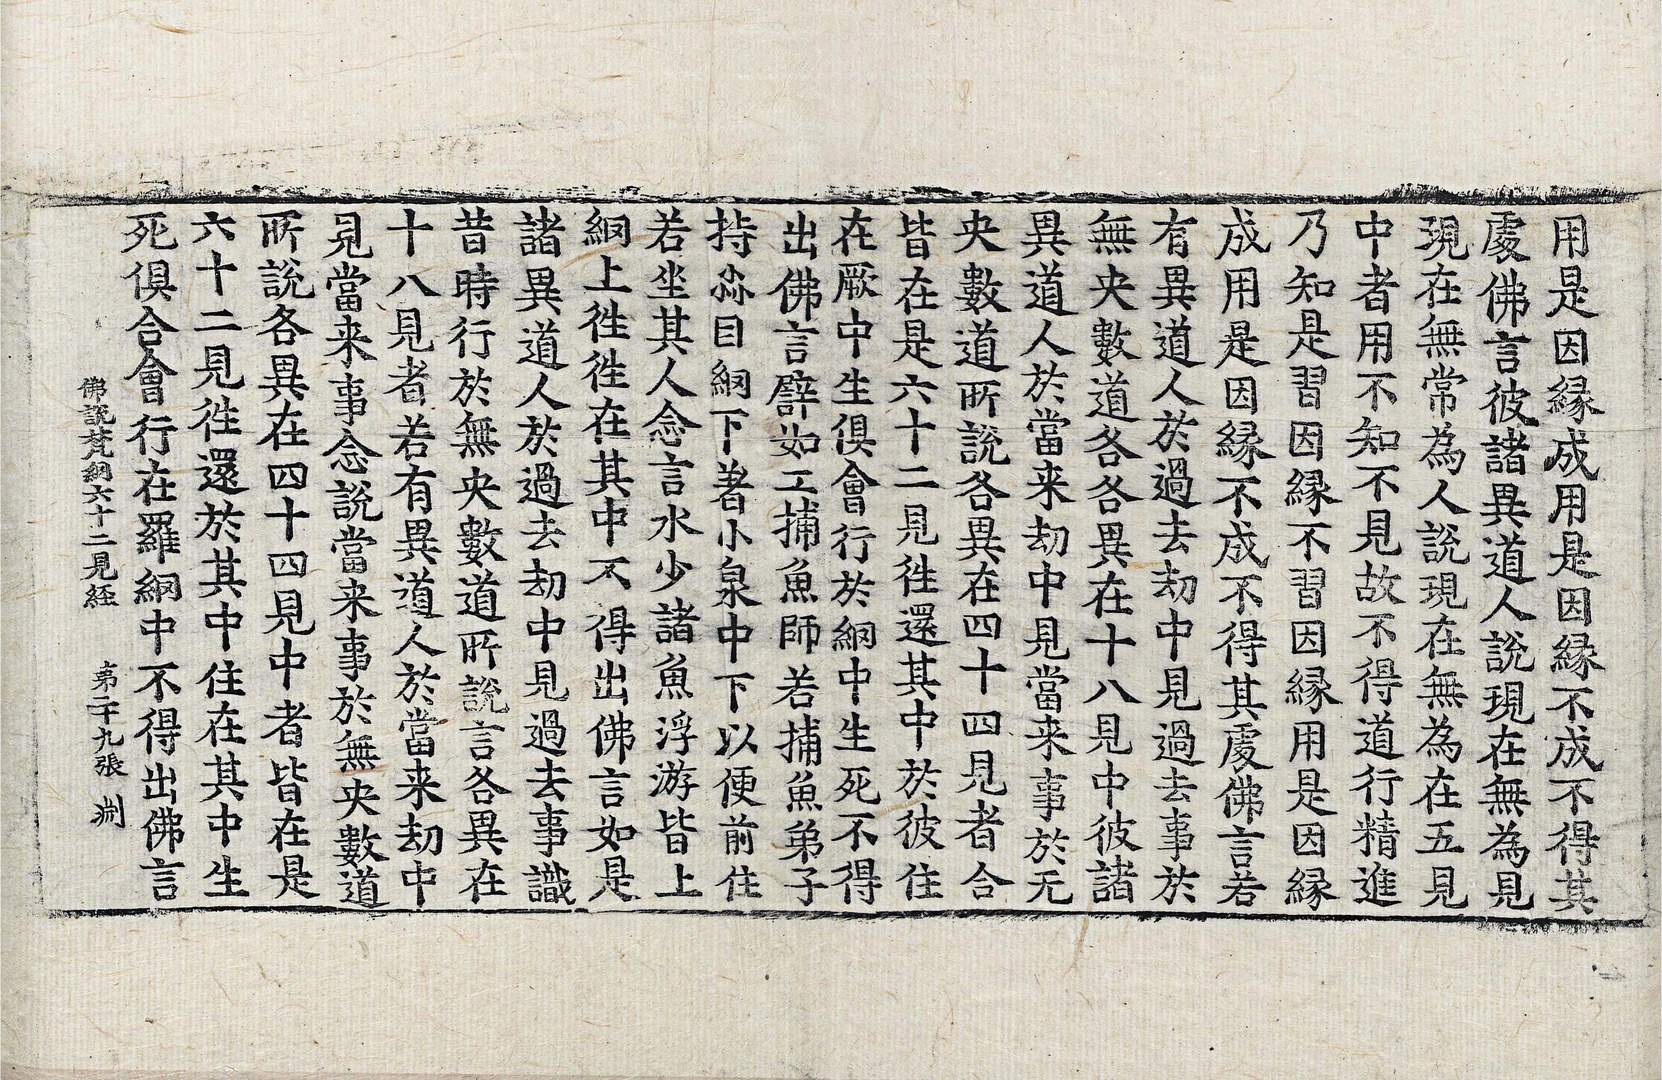 用是因縁成用是因縁不成不得其
處佛言彼諸異道人說現在無為見
現在無常為人說現在無為在五見
中者用不知不見故不得道行精進
乃知是習因縁不習因縁用是因縁
成用是因縁不成不得其處佛言若
有異道人於過去劫中見過去事於
無央數道各各異在十八見中彼諸
異道人於當来劫中見當来事於无
央數道所說各異在四十四見者合
皆在是六十二見徃還其中於彼住
在厥中生俱會行於網中生死不得
出佛言譬如工捕魚師若捕魚弟子
持㵘目網下著小泉中下以便前住
若坐其人念言水少諸魚浮游皆上
網上徃徃在其中不得出佛言如是
諸異道人於過去劫中見過去事識
昔時行於無央數道所說言各異在
十八見者若有異道人於當来劫中
見當来事念說當来事於無央數道
所說各異在四十四見中者皆在是
六十二見徃還於其中住在其中生
死俱合會行在羅網中不得出佛言
佛說梵網六十二見経 苐二十九張